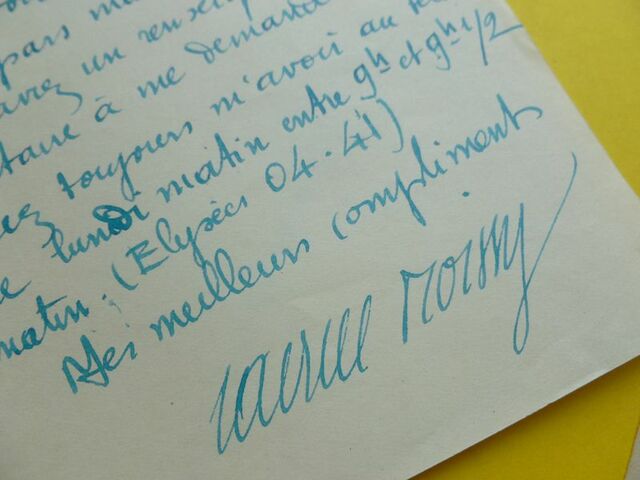 pars
avez un renseig
à me demande
toujours m'avoir au
lundi matin entre 9h et 9h 1/2
matin. (Elysées 04.41)
Mes meilleurs compliments